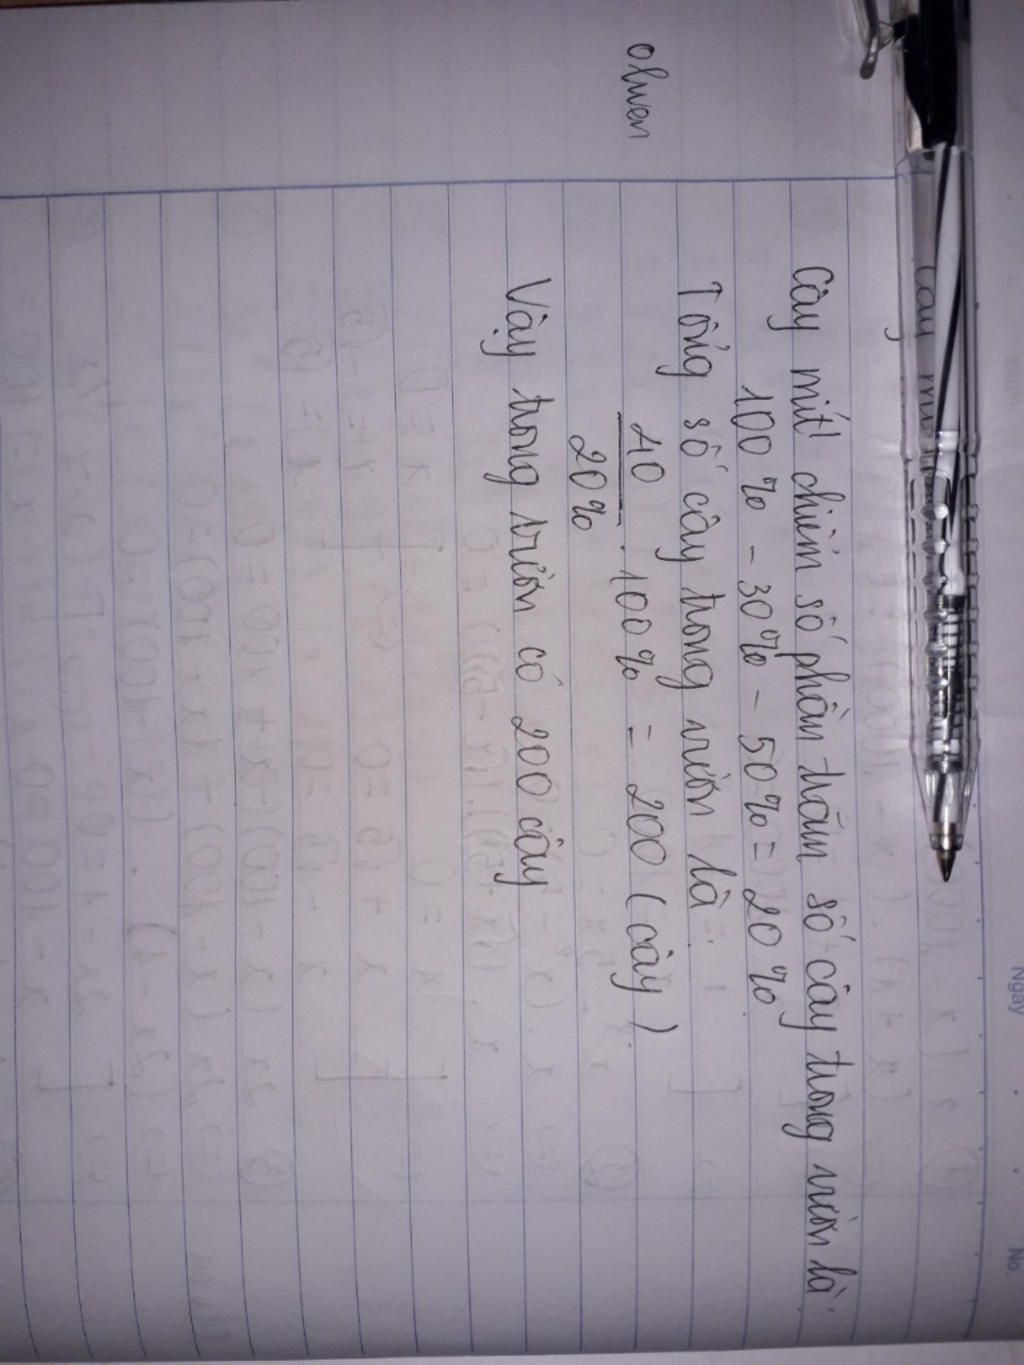 olwen
Cây mít chiếm số phần trăm số cây trong vườn là
100% - 30% - 50% = 20%
Tổng số cây trong vườn là
40
20%
. 100% = 200 (cây)
Vậy trong vườn có 200 cây
Ngày
No.